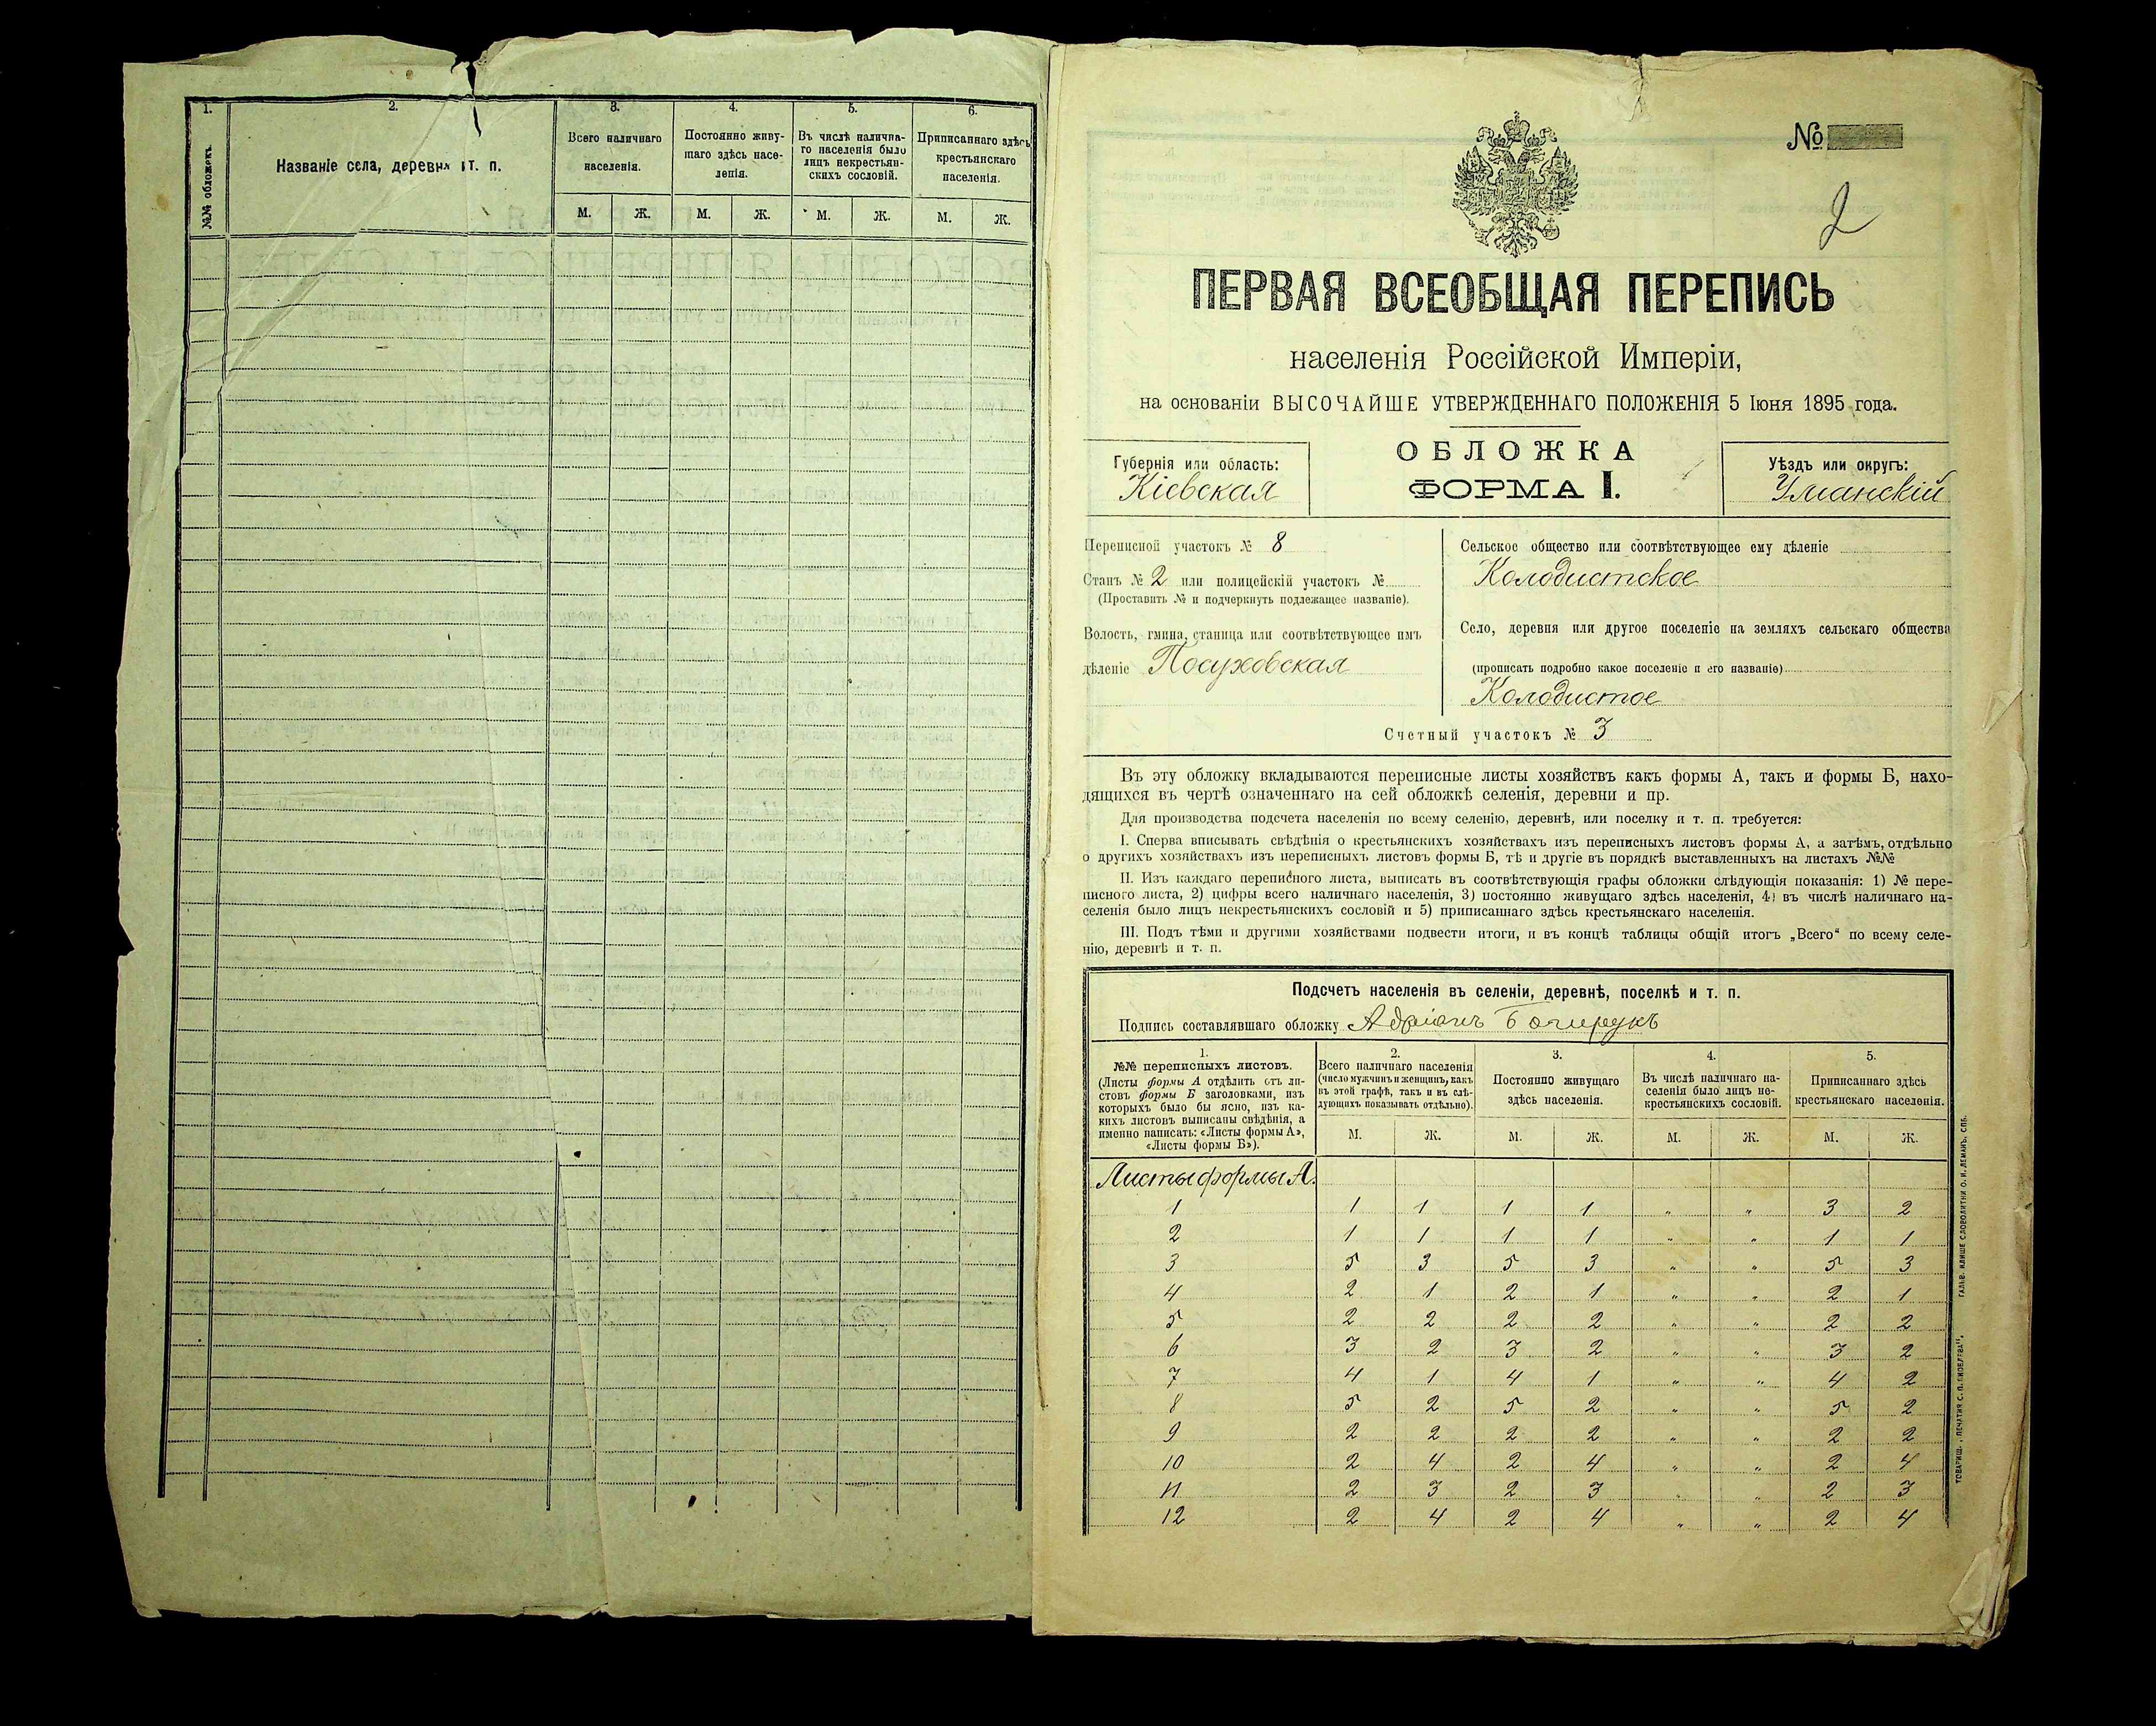 1. 2. 3. 4. 5. 6.
№№ обложекъ.
Названіе села, деревни и т. п.
Всего наличнаго населенія.
Постоянно живущаго здѣсь населенія.
Въ числѣ наличнаго населенія было лицъ некрестьянскихъ сословій.
Приписаннаго здѣсь крестьянскаго населенія.
М. Ж. М. Ж. М. Ж. М. Ж.
№
2
ПЕРВАЯ ВСЕОБЩАЯ ПЕРЕПИСЬ
населенія Россійской Имперіи,
на основаніи ВЫСОЧАЙШЕ УТВЕРЖДЕННАГО ПОЛОЖЕНІЯ 5 Іюня 1895 года.
Губернія или область:
Кіевская
ОБЛОЖКА
ФОРМА I.
Уѣздъ или округъ:
Уманскій
Переписной участокъ № 8
Станъ № 2 или полицейскій участокъ №
(Проставить № и подчеркнуть подлежащее названіе).
Волость, гмина, станица или соотвѣтствующее имъ
дѣленіе Посуховская
Сельское общество или соотвѣтствующее ему дѣленіе
Колодистское
Село, деревня или другое поселеніе на земляхъ сельскаго общества
(прописать подробно какое поселеніе и его названіе)
Колодистое
Счетный участокъ № 3
Въ эту обложку вкладываются переписные листы хозяйствъ какъ формы А, такъ и формы Б, нахо-
дящихся въ чертѣ означеннаго на сей обложкѣ селенія, деревни и пр.
Для производства подсчета населенія по всему селенію, деревнѣ, или поселку и т. п. требуется:
I. Сперва вписывать свѣдѣнія о крестьянскихъ хозяйствахъ изъ переписныхъ листовъ формы А, а затѣмъ, отдѣльно
о другихъ хозяйствахъ изъ переписныхъ листовъ формы Б, тѣ и другіе въ порядкѣ выставленныхъ на листахъ №№
II. Изъ каждаго переписного листа, выписать въ соотвѣтствующія графы обложки слѣдующія показанія: 1) № пере-
писного листа, 2) цифры всего наличнаго населенія, 3) постоянно живущаго здѣсь населенія, 4) въ числѣ наличнаго на-
селенія было лицъ некрестьянскихъ сословій и 5) приписаннаго здѣсь крестьянскаго населенія.
III. Подъ тѣми и другими хозяйствами подвести итоги, и въ концѣ таблицы общій итогъ „Всего“ по всему селе-
нію, деревнѣ и т. п.
Подсчетъ населенія въ селеніи, деревнѣ, поселкѣ и т. п.
Подпись составлявшаго обложку Адріанъ
1. 2. 3. 4. 5.
№№ переписныхъ листовъ.
(Листы формы А отдѣлить отъ ли-
стовъ формы Б заголовками, изъ
которыхъ было бы ясно, изъ ка-
кихъ листовъ выписаны свѣдѣнія, а
именно написать: «Листы формы А»,
«Листы формы Б»).
Всего наличнаго населенія
(число мужчинъ и женщинъ, какъ
въ этой графѣ, такъ и въ слѣ-
дующихъ показывать отдѣльно).
Постоянно живущаго
здѣсь населенія.
Въ числѣ наличнаго на-
селенія было лицъ не-
крестьянскихъ сословій.
Приписаннаго здѣсь
крестьянскаго населенія.
М. Ж. М. Ж. М. Ж. М. Ж.
Листы формы А.
1 1 1 1 1 " " 3 2
2 1 1 1 1 " " 1 1
3 5 3 5 3 " " 5 3
4 2 1 2 1 " " 2 1
5 2 2 2 2 " " 2 2
6 3 2 3 2 " " 3 2
7 4 1 4 1 " " 4 2
8 5 2 5 2 " " 5 2
9 2 2 2 2 " " 2 2
10 2 4 2 4 " " 2 4
11 2 3 2 3 " " 2 3
12 2 4 2 4 " " 2 4